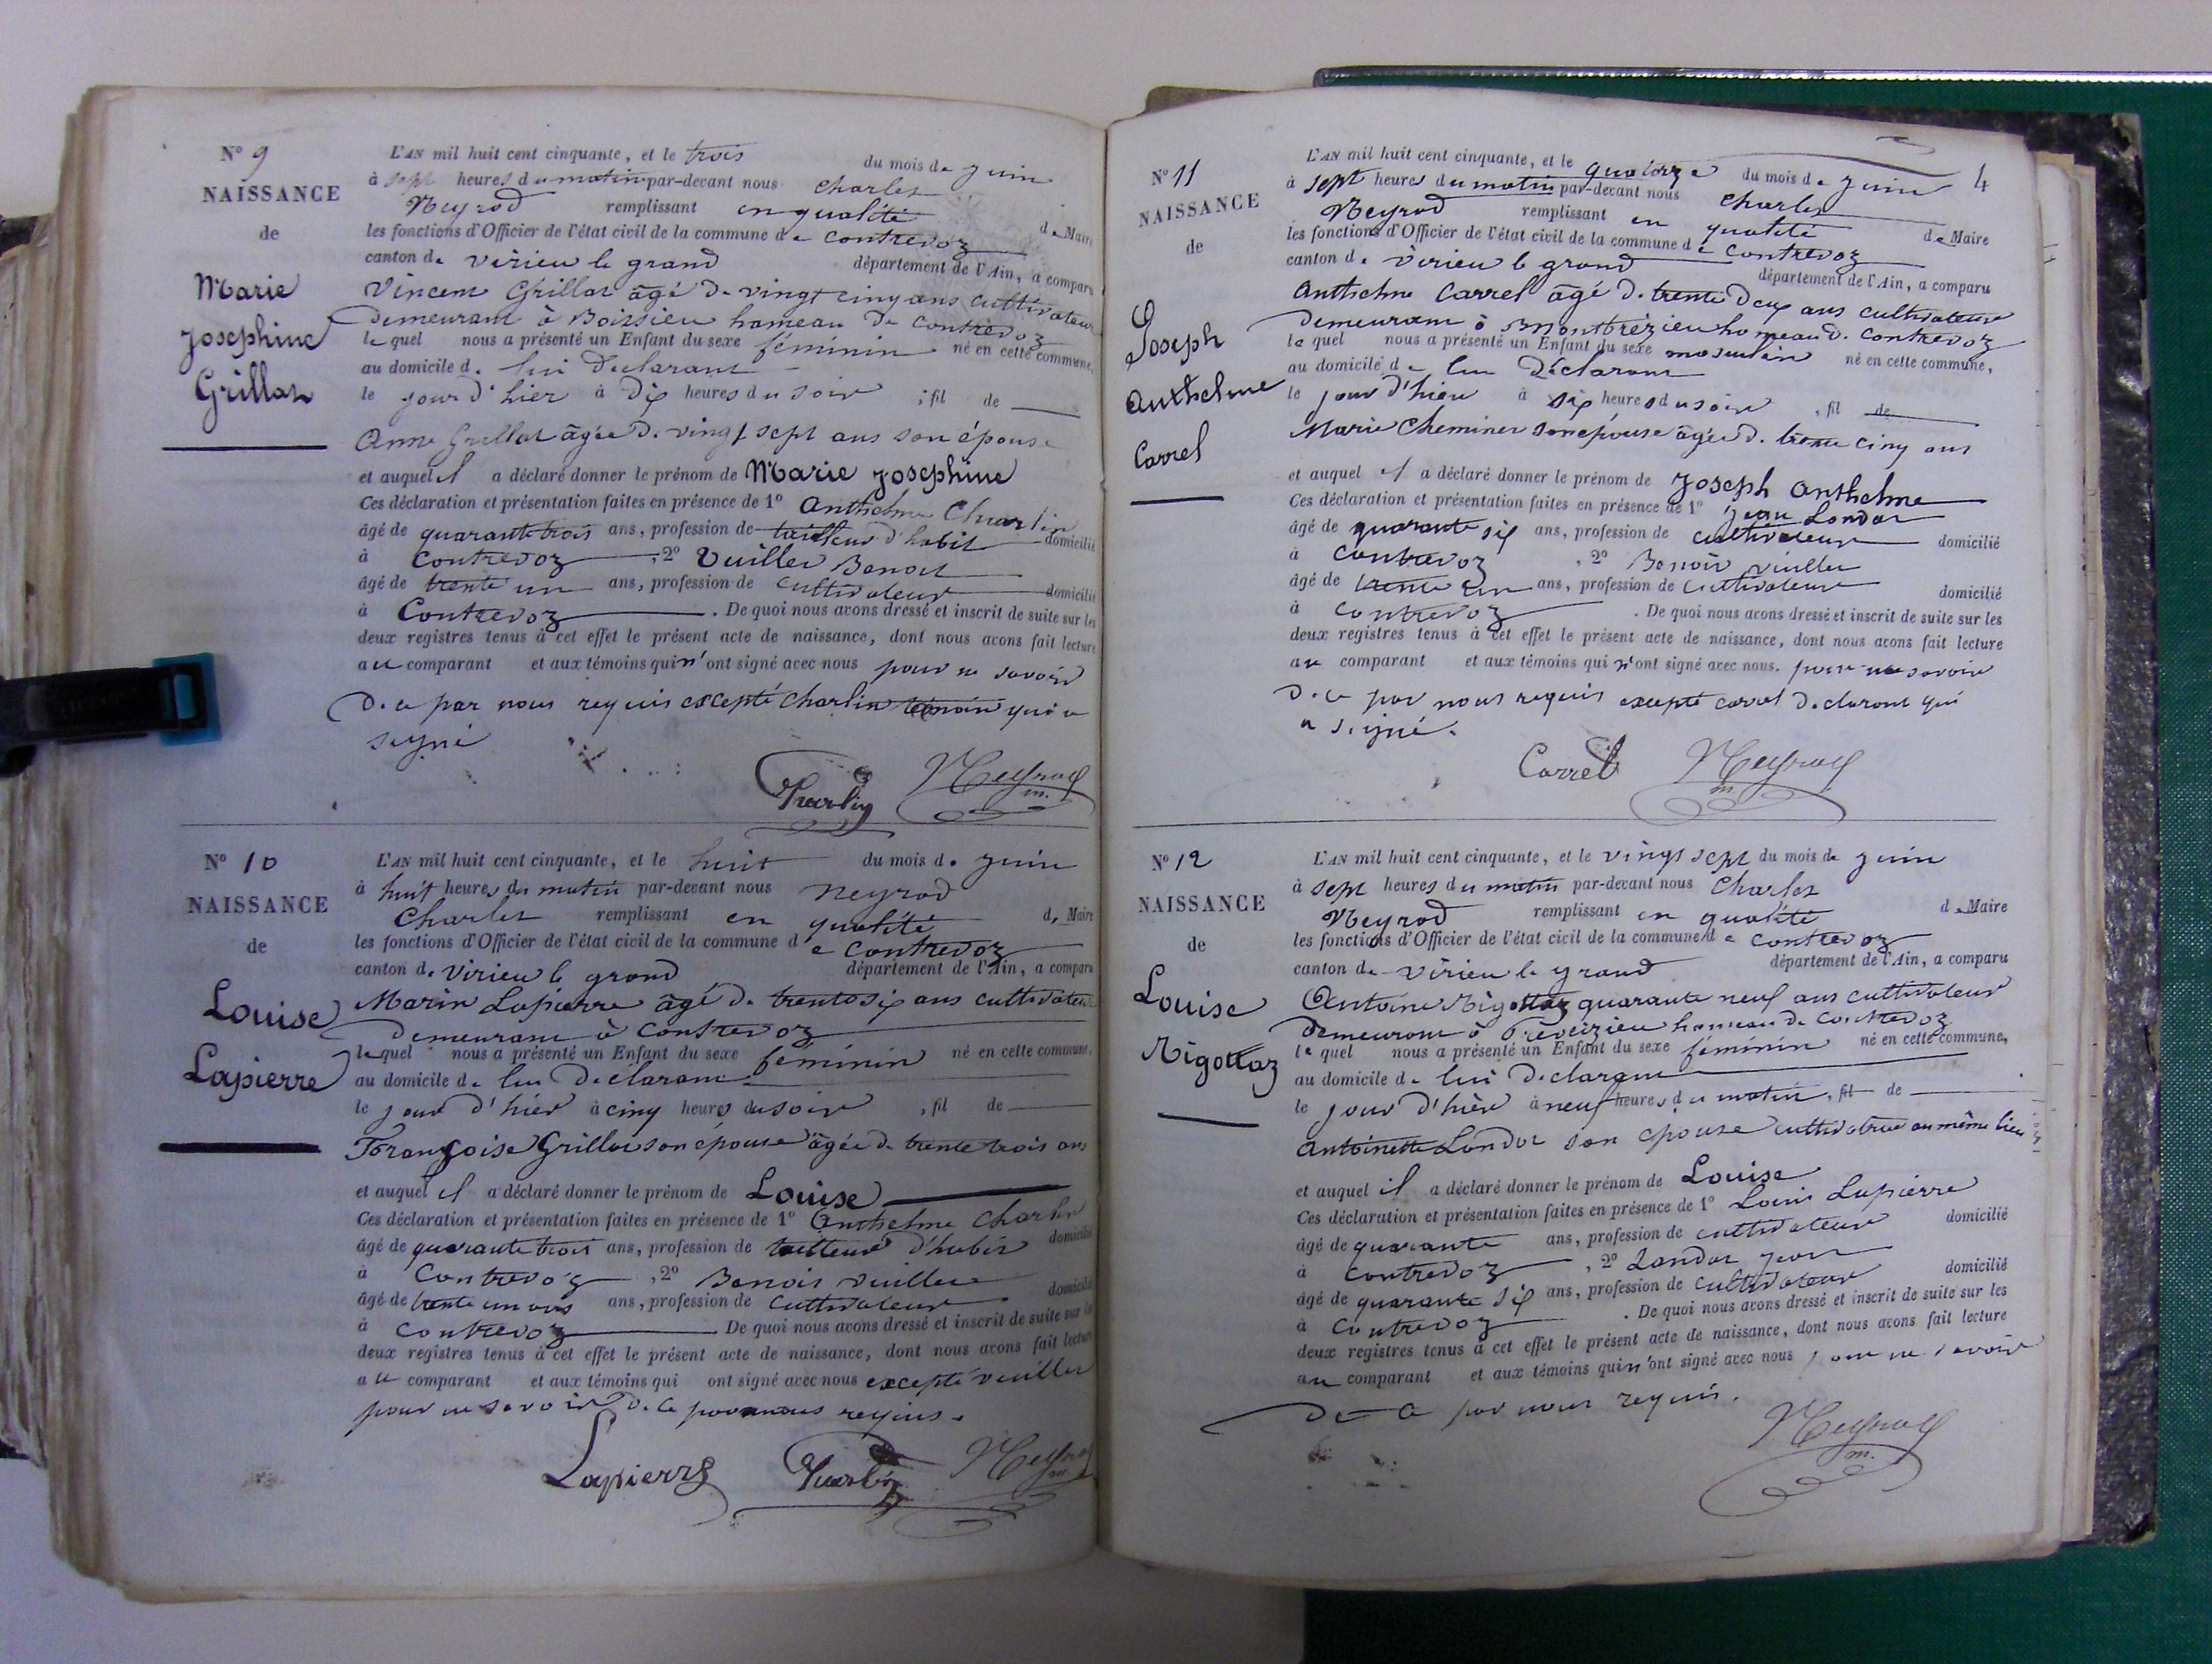 N° 9
NAISSANCE
de
Marie
Josephine
Grillat
L'AN mil huit cent cinquante, et le trois du mois de juin
à sept heures du matin par-devant nous Charles
Neyrod remplissant en qualité de Maire
les fonctions d'Officier de l'état civil de la commune de contrevoz
canton de virieu le grand département de l'Ain, a comparu
Vincent Grillat âgé de vingt cinq ans cultivateur
demeurant à Boissieu hameau de contrevoz
lequel nous a présenté un Enfant du sexe féminin né en cette commune,
au domicile de lui déclarant
le jour d'hier à dix heures du soir ; fil de
Anne Grillat âgée de vingt sept ans son épouse
et auquel il a déclaré donner le prénom de Marie josephine
Ces déclaration et présentation faites en présence de 1° Anthelme Charlin
âgé de quarante trois ans, profession de tailleur d'habit domicilié
à contrevoz , 2° Vuiller Benoit
âgé de trente un ans, profession de cultivateur domicilié
à Contrevoz . De quoi nous avons dressé et inscrit de suite sur les
deux registres tenus à cet effet le présent acte de naissance, dont nous avons fait lecture
au comparant et aux témoins qui n'ont signé avec nous pour ne savoir
de ce par nous requis excepté charlin témoin qui a
signé
Charlin Neyrod m.
N° 10
NAISSANCE
de
Louise
Lapierre
L'AN mil huit cent cinquante, et le huit du mois de juin
à huit heures du matin par-devant nous neyrod
Charles remplissant en qualité de Maire
les fonctions d'Officier de l'état civil de la commune de contrevoz
canton de virieu le grand département de l'Ain, a comparu
Marin Lapierre âgé de trente six ans cultivateur
demeurant à contrevoz
lequel nous a présenté un Enfant du sexe féminin né en cette commune,
au domicile de lui déclarant
le jour d'hier à cinq heures du soir , fil de
Françoise Grillat son épouse âgée de trente trois ans
et auquel il a déclaré donner le prénom de Louise
Ces déclaration et présentation faites en présence de 1° Anthelme Charlin
âgé de quarante trois ans, profession de tailleur d'habit domicilié
à Contrevoz , 2° Benoit vuiller
âgé de trente un ans ans, profession de cultivateur domicilié
à contrevoz . De quoi nous avons dressé et inscrit de suite sur les
deux registres tenus à cet effet le présent acte de naissance, dont nous avons fait lecture
au comparant et aux témoins qui ont signé avec nous excepté vuiller
pour ne savoir de ce par nous requis.
Lapierre Charlin Neyrod m.
4
N° 11
NAISSANCE
de
Joseph
Anthelme
Carrel
L'AN mil huit cent cinquante, et le quatorze du mois de juin
à sept heures du matin par-devant nous Charles
Neyrod remplissant en qualité de Maire
les fonctions d'Officier de l'état civil de la commune de contrevoz
canton de virieu le grand département de l'Ain, a comparu
Anthelme Carrel âgé de trente deux ans cultivateur
demeurant à Montbrézieu hameau de contrevoz
lequel nous a présenté un Enfant du sexe masculin né en cette commune,
au domicile de lui déclarant
le jour d'hier à six heures du soir , fil de
Marie Cheminer son épouse âgée de trente cinq ans
et auquel il a déclaré donner le prénom de joseph anthelme
Ces déclaration et présentation faites en présence de 1° jean Landar
âgé de quarante six ans, profession de cultivateur domicilié
à contrevoz , 2° Benoit vuiller
âgé de trente un ans, profession de cultivateur domicilié
à contrevoz . De quoi nous avons dressé et inscrit de suite sur les
deux registres tenus à cet effet le présent acte de naissance, dont nous avons fait lecture
au comparant et aux témoins qui n'ont signé avec nous. pour ne savoir
de ce par nous requis excepté carrel déclarant qui
a signé.
Carrel Neyrod m
N° 12
NAISSANCE
de
Louise
Rigottaz
L'AN mil huit cent cinquante, et le vingt sept du mois de juin
à sept heures du matin par-devant nous Charles
Neyrod remplissant en qualité de Maire
les fonctions d'Officier de l'état civil de la commune de contrevoz
canton de virieu le grand département de l'Ain, a comparu
Antoine Rigottaz quarante neuf ans cultivateur
demeurant à Preveizieu hameau de contrevoz
lequel nous a présenté un Enfant du sexe féminin né en cette commune,
au domicile de lui déclarant
le jour d'hier à neuf heures du matin , fil de
antoinette Landar son épouse cultivatrice au même lieu
et auquel il a déclaré donner le prénom de Louise
Ces déclaration et présentation faites en présence de 1° Louis Lapierre
âgé de quarante ans, profession de cultivateur domicilié
à contrevoz , 2° Landar jean
âgé de quarante six ans, profession de cultivateur domicilié
à contrevoz . De quoi nous avons dressé et inscrit de suite sur les
deux registres tenus à cet effet le présent acte de naissance, dont nous avons fait lecture
au comparant et aux témoins qui n'ont signé avec nous pour ne savoir
de ce par nous requis.
Neyrod m.